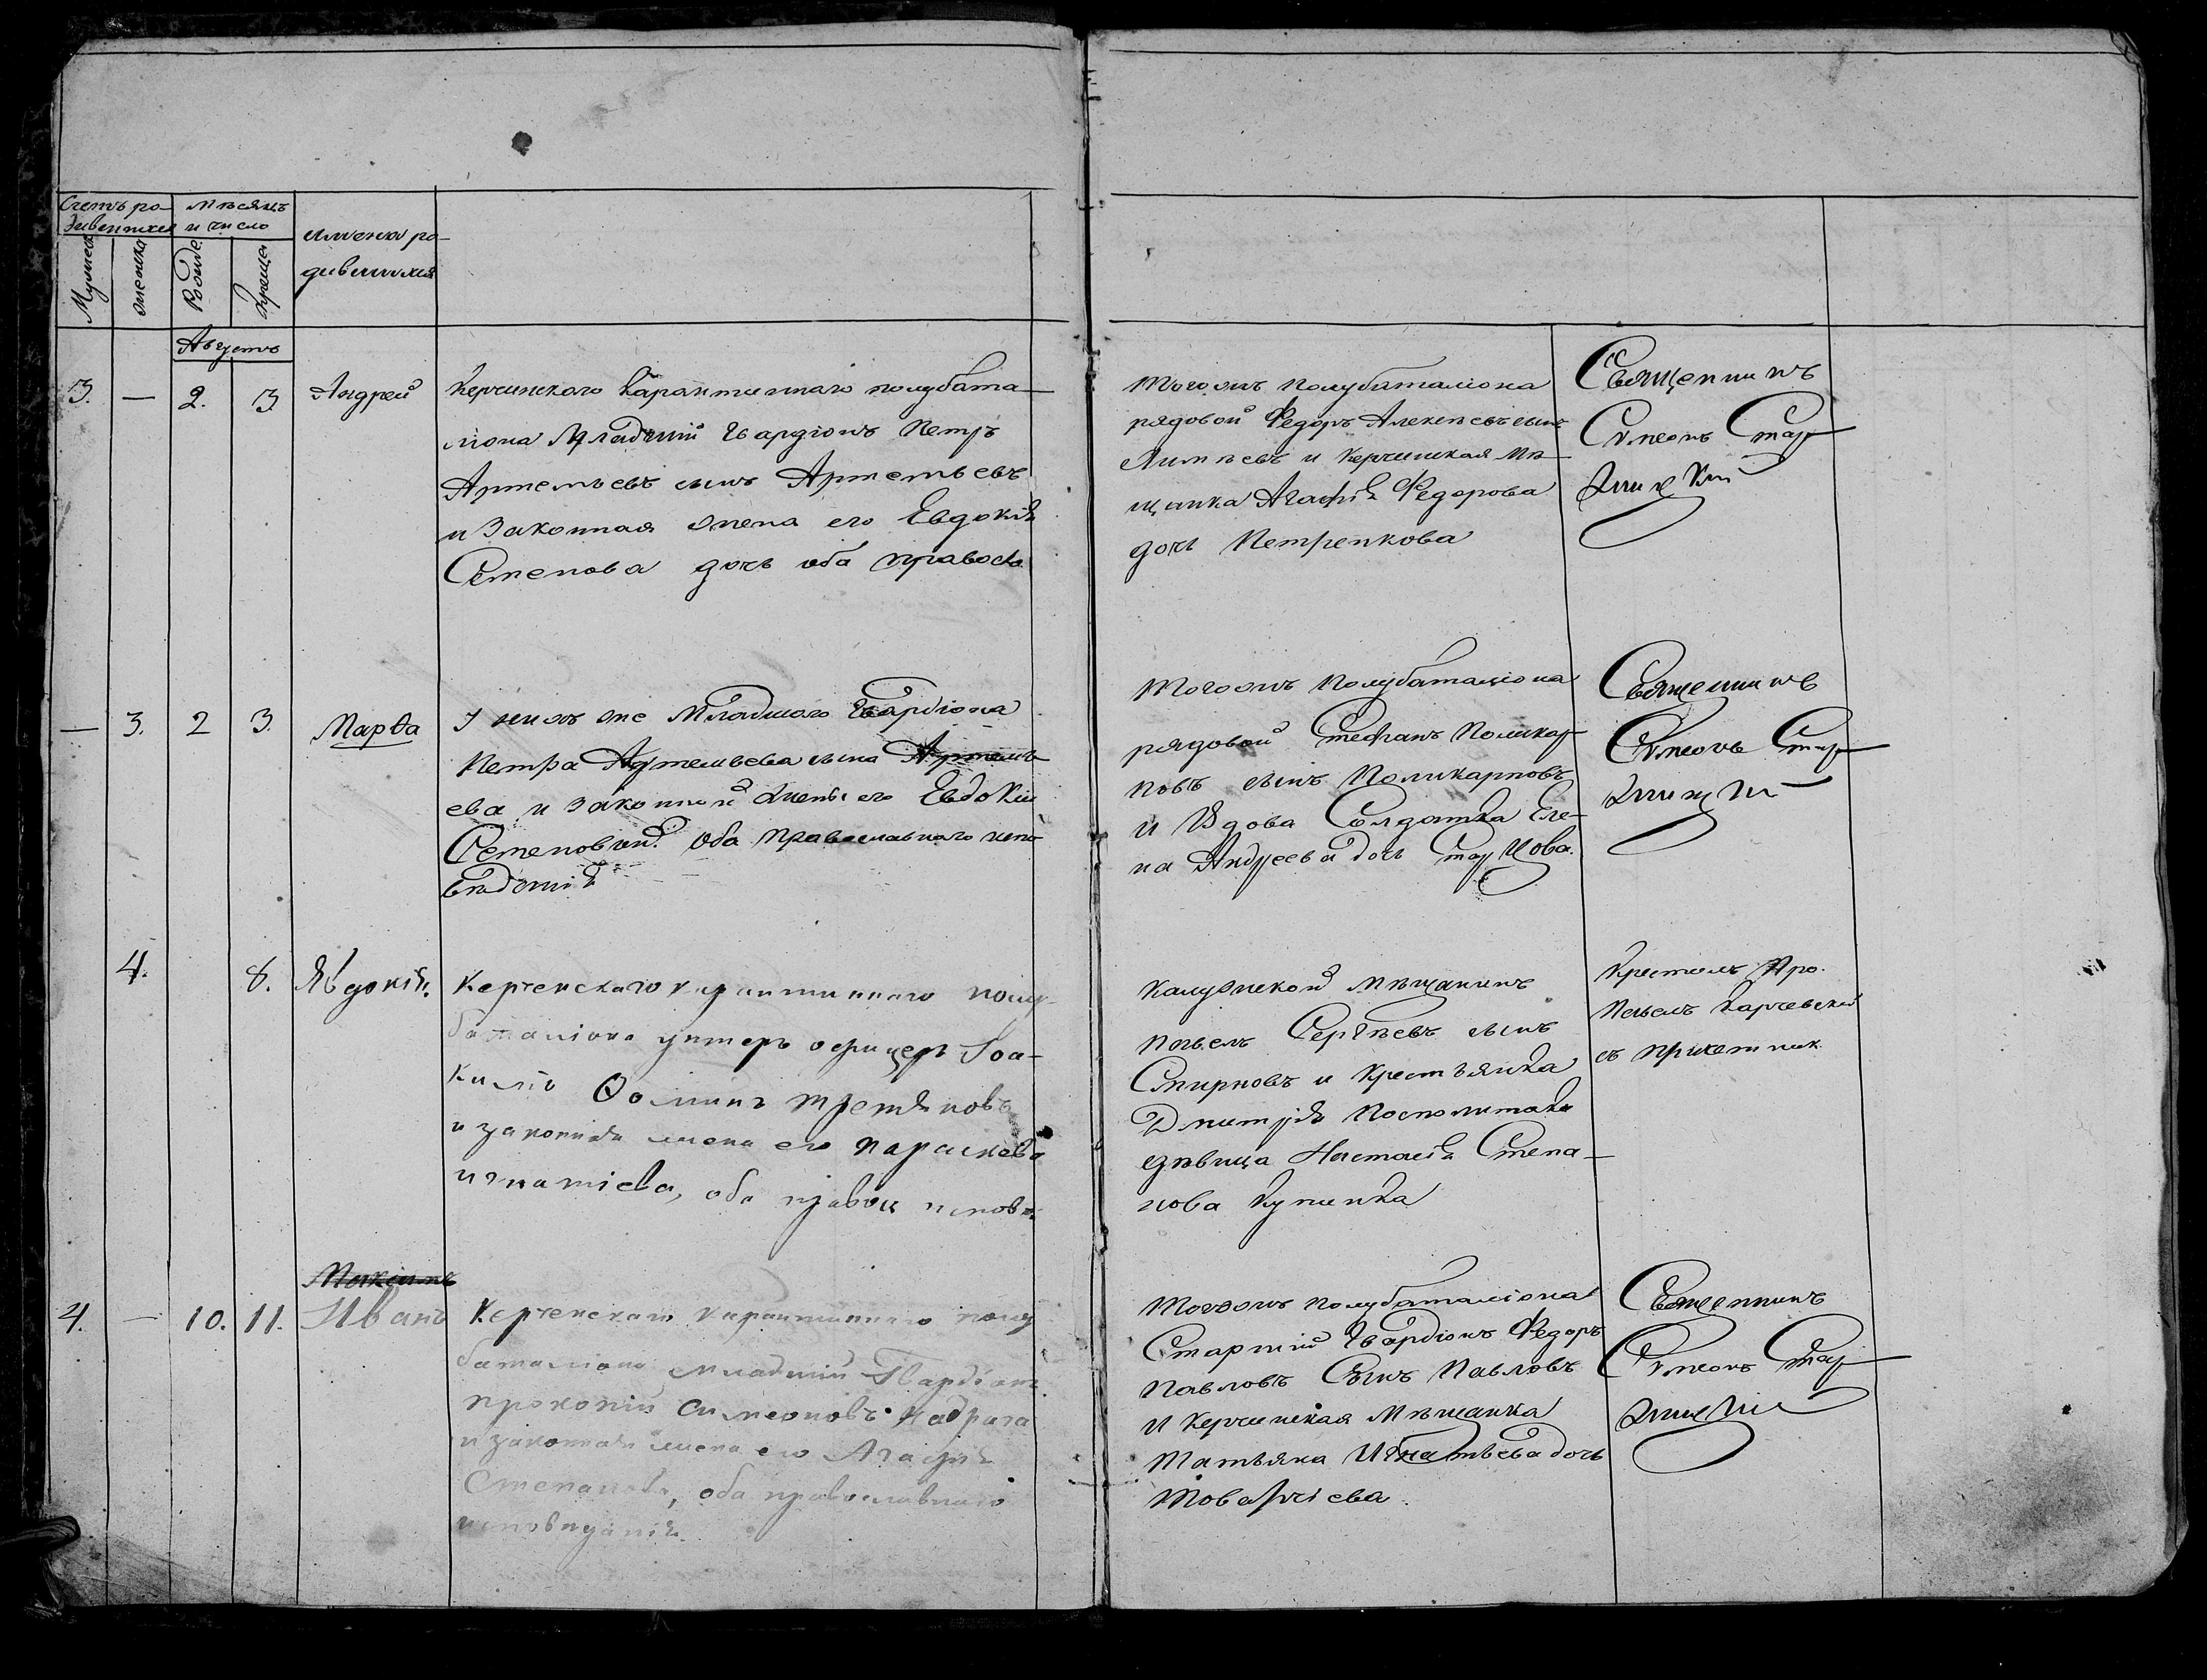 Счетъ ро-
дившихся
Мѣсяцъ
и число
Имена ро-
дившихся
Мужеска
Женска
Рожде
Креще
Августъ
3. — 2. 3. Андрей
Керчинскаго Карантиннаго полубата-
лiона Младшiй Гвардiонъ Петръ
Артемьевъ сынъ Артемьевъ
и законная жена его Евдокiя
Семенова дочь оба правосл.
Тогожъ полубаталiона
рядовой Федоръ Алексѣевъ сынъ
и Керчинская Мѣ-
щанка Агафiя Федорова
дочь Петренкова
Священникъ
Сѵмеонъ
— 3. 2 3. Марѳа
У нихъ же Младшаго Гвардiона
Петра Артемьева сына Артемь-
ева и законной жены его Евдокiи
Семеновой оба православнаго испо-
вѣданiя
Тогожъ Полубаталiона
рядовой Стефанъ Поликар-
повъ сынъ Поликарповъ
и Вдова Солдатка Еле-
на Андреева дочь
Священникъ
Сѵмеонъ
4. 8. Явдокiя.
Керченскаго карантиннаго полу-
баталiона унтеръ офицеръ Iоа-
кимъ Ѳоминъ Третяковъ
и законная жена его Параскева
игнатiева, оба правос исповѣ.
Калужской мѣщанинъ
Павелъ Сергѣевъ сынъ
Смирновъ и Крестьянка
Дмитрiя Посполитака
дѣвица Настасiя Степа-
нова
Крестилъ Про.
Павелъ Карчевскiй
съ причетник.
Максимъ
4. — 10. 11. Иванъ
Керченскаго карантиннаго полу
баталiона младшiй Гвардiонъ
Прокопiй Симеоновъ Кадрига
и законная жена его Агафiя
Степанова, оба православнаго
исповѣданiя.
Тогожъ полубаталiона
Старшiй Гвардiонъ Федоръ
Павловъ Сынъ Павловъ
и Керчинская Мѣщанка
Татьяна Игнатьева дочь